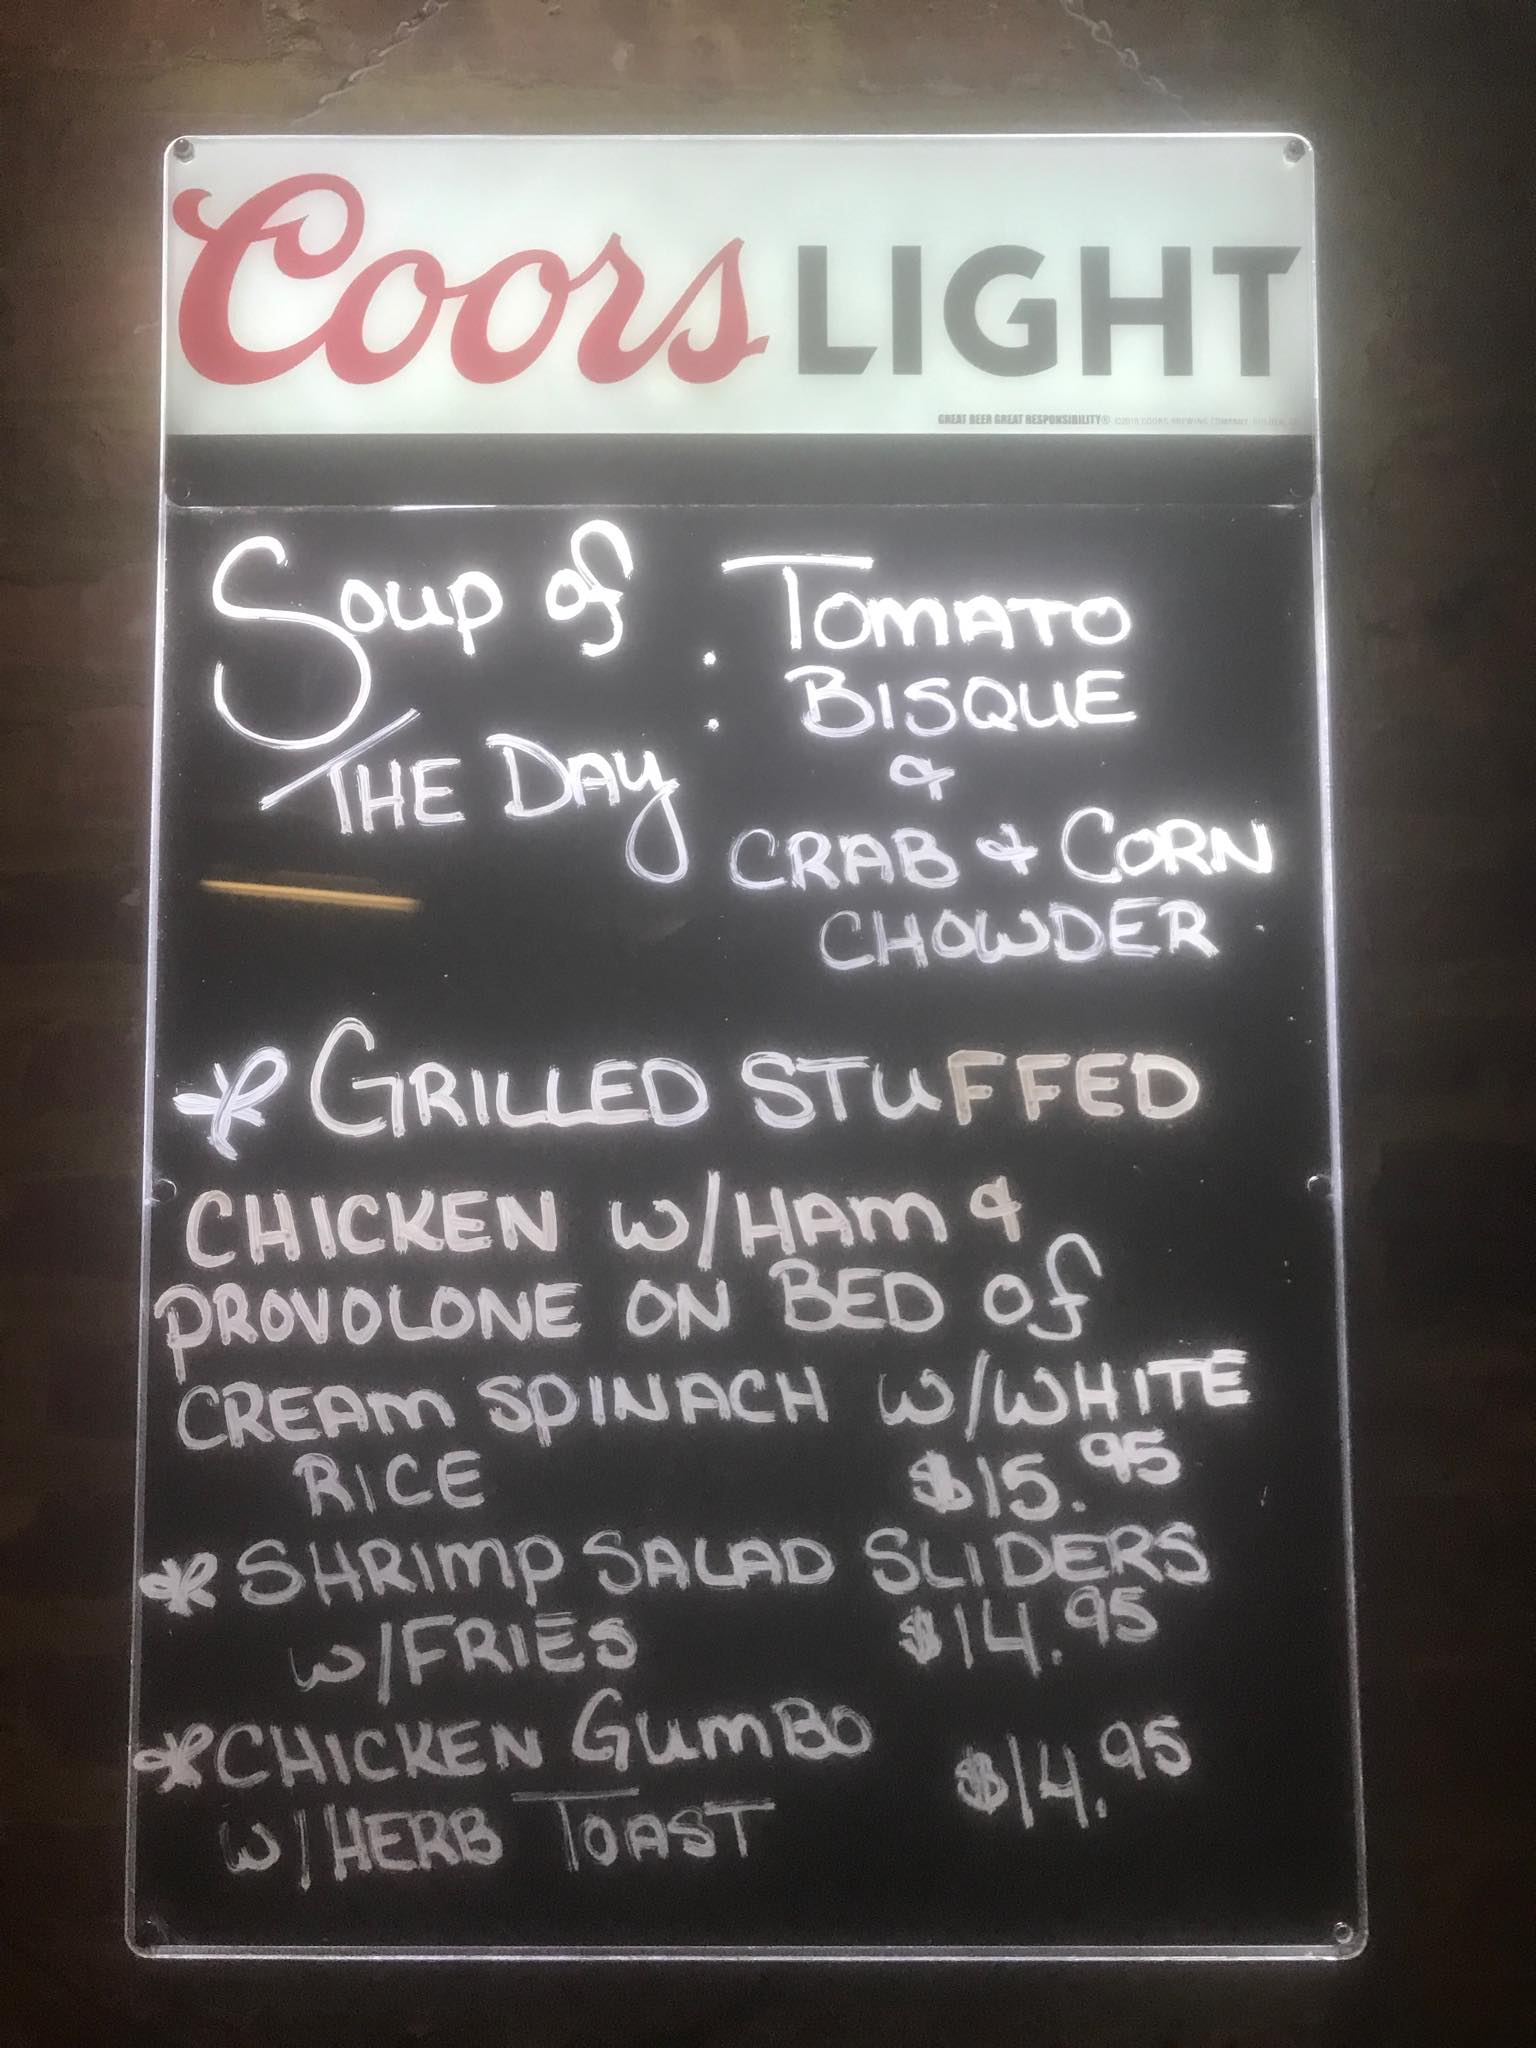 Coors LIGHT
GREAT BEER GREAT RESPONSIBILITY® ©2018 COORS BREWING COMPANY, GOLDEN,
Soup of
THE DAY :
TOMATO
BISQUE
&
CRAB & CORN
CHOWDER
* GRILLED STUFFED
CHICKEN W/HAM &
PROVOLONE ON BED of
CREAM SPINACH W/WHITE
RICE $15.95
* SHRIMP SALAD SLIDERS
W/FRIES $14.95
* CHICKEN GUMBO $14.95
W/HERB TOAST